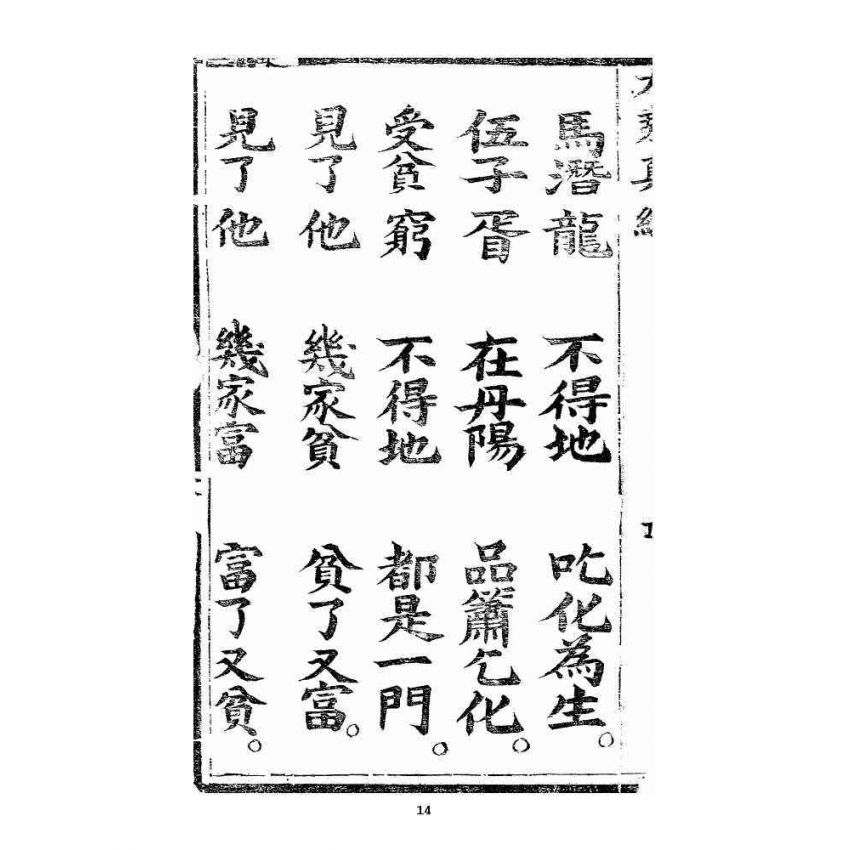 馬潛龍 不得地 叱化為生。
伍子胥 在丹陽 品簫乞化。
受貧窮 不得地 都是一門。
見了他 幾家貧 貧了又富。
見了他 幾家富 富了又貧。
14